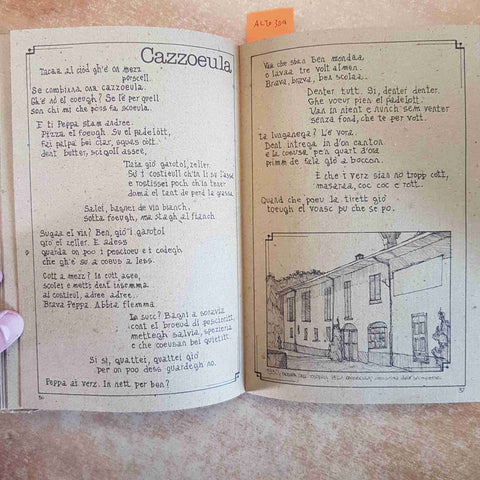 ALTO 139
Cazzoeula
Tacaa al ciod gh'è on mezz
porscell.
Se combinna ona cazzoeula.
Gh'è nò el coeugh? Se l'è per quell
son chi mì che poss fà scoeula.
E tì Peppa stam adree.
Pizza el foeugh. Su el padelòtt,
fai palpà bei ciar, squas cott
dent butter, scigoll assee,
Taca giò garotol, zeller.
Su i costioeul ch'in lì sù l'asse
e rostissei poch ch'in tener
domà el tant de perd la grassa.
Salei, bagnei de vin bianch,
sotta foeugh, ma stagh al fianch
Sugaa el vin? Ben, giò i garotol
giò el zeller. E adess
guarda on poo i pescioeu e i codegh
che gh'è sù a coeus a less.
Cott a mezz? In cutt assee,
scolei e mettei dent insemma
ai costioeul, adree adree..
Brava Peppa. Abbia flemma.
In succ? Bagni a soravia
cont el broeud di pesciolitt,
mettegh salvia, speziaria
e che coeusan bei quiett.
Sì sì, quattei, quattei giò
per on poo dess guardegh nò.
Peppa ai verz. In nett per ben?
56
Var che sban Ben mondaa
e lavaa tre volt almen.
Brava, brava, ben scolaa.
Denter tutt. Sì, denter denter.
Ghe voeur pien el padelòtt.
Van in nient e nunch sem venter
senza fond, che te per vott.
La luganega? L'è vora.
Dent intrega in d'on canton
e la coeusa pen quart d'ora
primm de falla giò a boccon.
E che i verz sian no tropp cott,
masaraa, coc coc e rott..
Quand che poeu la tirett giò
toeugh el voasc pu che se po.
57